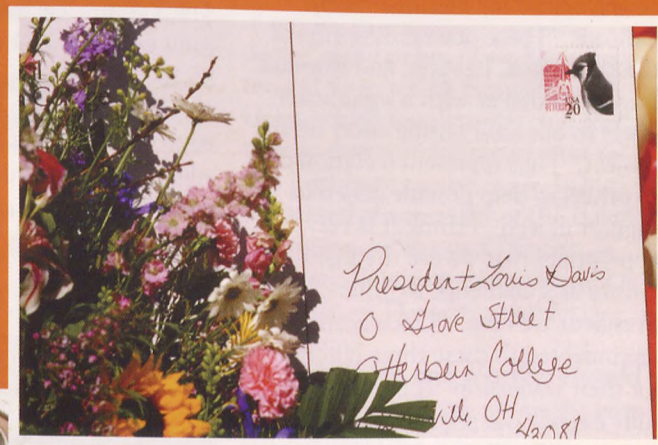 USA
20
President Louis Davis
0 Grove Street
Otterbein College
ville, OH
43081